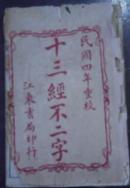 民國四年重校
十三經不二字
江東書局印行